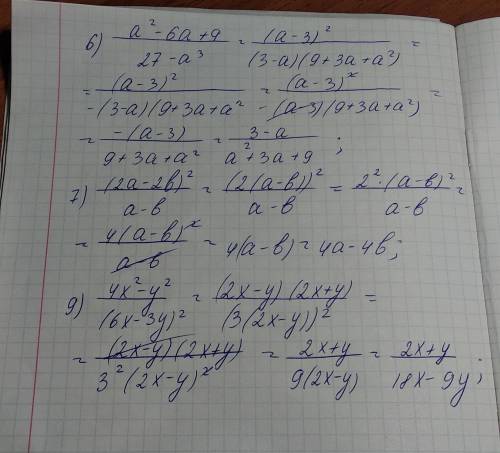 6) (a²-6a+9)/(27-a³) = (a-3)²/((3-a)(9+3a+a²)) =
= (a-3)²/(-(3-a)(9+3a+a²) = (a-3)²/(-(a-3)(9+3a+a²)) =
= -(a-3)/(9+3a+a²) = (3-a)/(a²+3a+9) ;
7) (2a-2b)²/(a-b) = (2(a-b))²/(a-b) = 2²·(a-b)²/(a-b) =
= 4(a-b)²/(a-b) = 4(a-b) = 4a-4b;
9) (4x²-y²)/(6x-3y)² = (2x-y)(2x+y)/(3(2x-y))² =
= (2x-y)(2x+y)/(3²(2x-y)²) = (2x+y)/(9(2x-y)) = (2x+y)/(18x-9y) ;